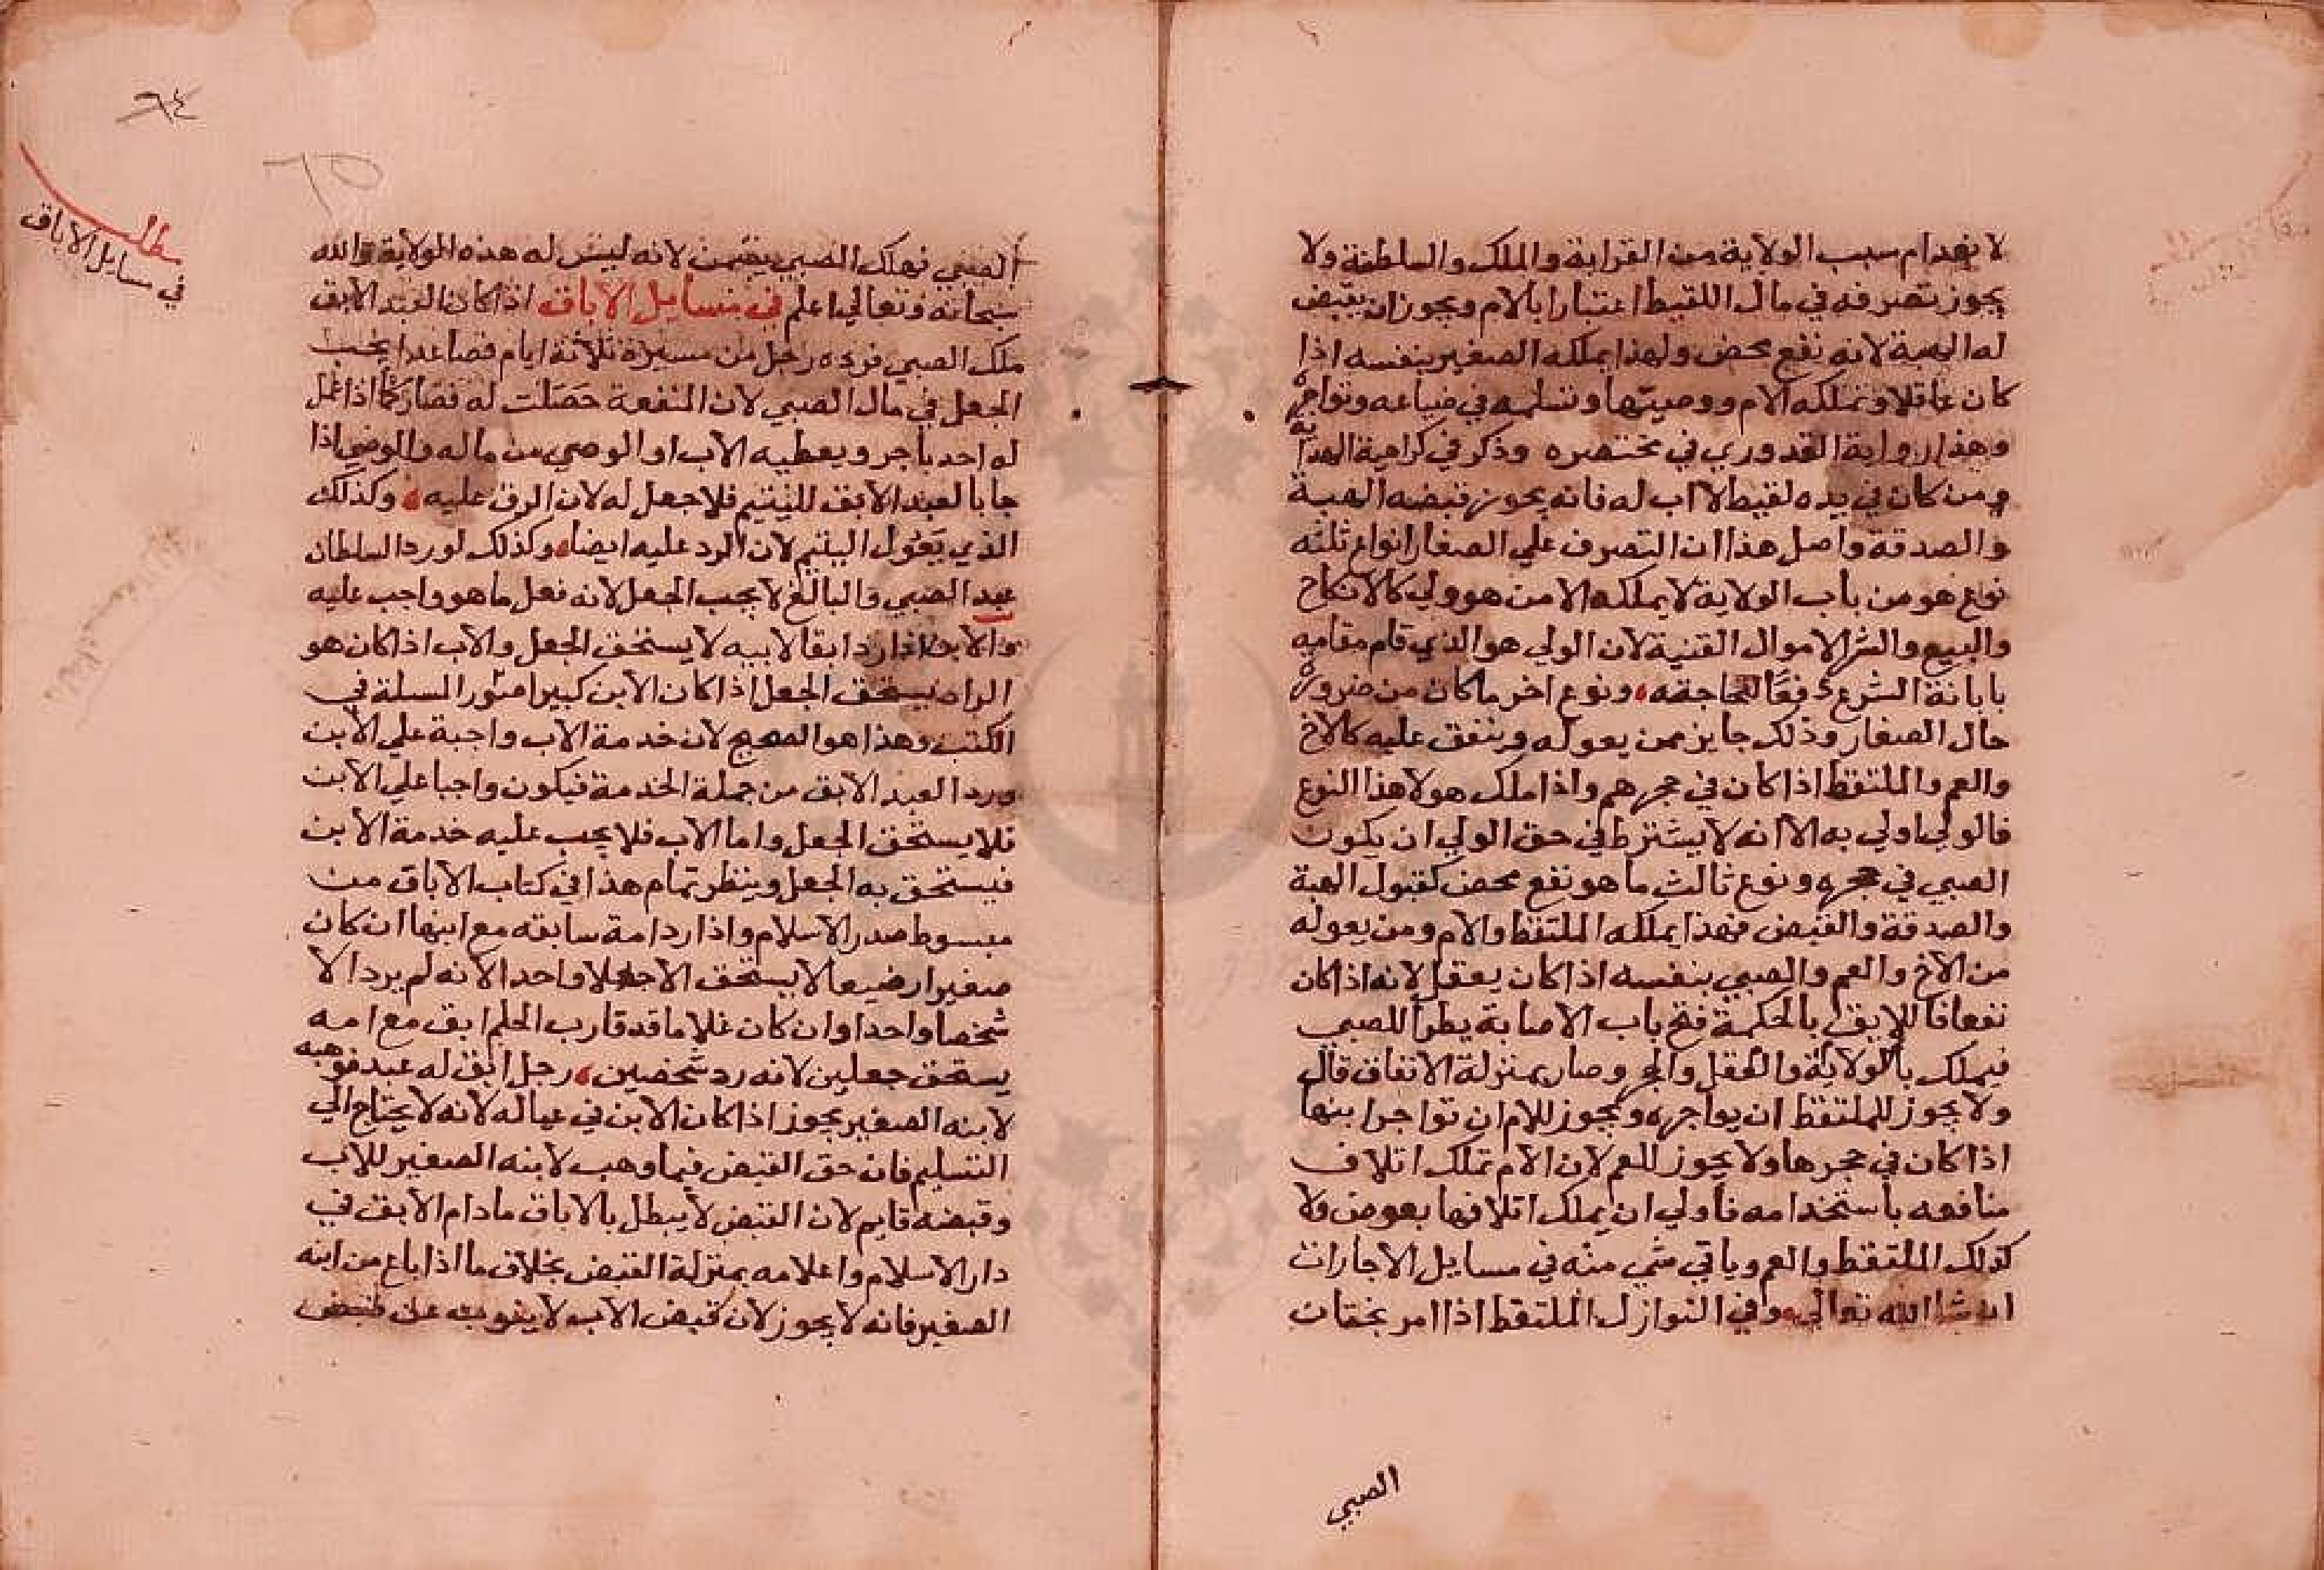 لانعدام سبب الولاية من القرابة والملك والسلطنة ولا
يجوز تصرفه في مال اللقيط اعتبارا بالام ويجوز ان يقبض
له الهبة لانه نفع محض ولهذا يملكه الصغير بنفسه اذا
كان عاقلا وتملكه الام ووصيتها وتسلمه في ضياعه ونواجره
وهذا رواية القدوري في مختصره وذكر في كراهية الهداية
ومن كان في يده لقيط لا اب له فانه يجوز قبضه الهبة
والصدقة واصل هذا ان التصرف علي الصغار انواع ثلثه
نوع هو من باب الولاية لا يملكه الا من هو ولي كالانكاح
والبيع والشرا لاموال القنية لان الولي هو الذي قام مقامه
بابانة الشرع دفعًا لحاجته ونوع اخر ما كان من ضرورة
حال الصغار وذلك جايز ممن يعوله وينفق عليه كالاخ
والعم والملتقط اذا كان في حجرهم واذا ملك هولا هذا النوع
فالولي اولي به الا انه لا يشترط في حق الولي ان يكون
الصبي في حجره ونوع ثالث ما هو نفع محض كقبول الهبة
والصدقة والقبض فهذا يملكه الملتقط والام ومن يعوله
من الاخ والعم والصبي بنفسه اذا كان يعقل لانه اذا كان
نفعا فاللايق بالحكمة فتح باب الاصابة للصبي
فيملك بالولاية والعقل والحجر وصار بمنزلة الانفاق قال
ولا يجوز للملتقط ان يواجره ويجوز للام ان تواجر ابنها
اذا كان في حجرها ولا يجوز للعم لان الام تملك اتلاف
منافعه باستخدامه فاولي ان يملك اتلافها بعوض ولا
كذلك الملتقط والعم وياتي شي منه في مسايل الاجارات
ان شا الله تعالي وفي النوازل الملتقط اذا امر بختان
الصبي
مطلب
في مسايل الاباق
الصبي فهلك الصبي يضمن لانه ليس له هذه الولاية والله
سبحانه وتعالي اعلم في مسايل الاباق اذا كان العبد الابق
ملك الصبي فرده رجل من مسيرة ثلاثة ايام فصاعدا يجب
الجعل في مال الصبي لان المنفعة حصلت له فصار كما اذا عمل
له احد باجر ويعطيه الاب او الوصي من ماله والوصي اذا
جا بالعبد الابق لليتيم فلا جعل له لان الرد عليه وكذلك
الذي يعول اليتيم لان الرد عليه ايضا وكذلك لو رد السلطان
عبد الصبي والبالغ لا يجب الجعل لانه فعل ما هو واجب عليه
والابن اذا رد ابقا لابيه لا يستحق الجعل والاب اذا كان هو
الراد يستحق الجعل اذا كان الابن كبيرا المسلة في
الكتب وهذا هو الصحيح لان خدمة الاب واجبة علي الابن
ورد العبد الابق من جملة الخدمة فيكون واجبا علي الابن
فلا يستحق الجعل واما الاب فلا يجب عليه خدمة الابن
فيستحق به الجعل وينظر تمام هذا في كتاب الاباق من
مبسوط صدر الاسلام واذا رد امة سابقه مع ابنها ان كان
صغيرا رضيعا لا يستحق الا جعلا واحدا لانه لم يرد الا
شخصا واحدا وان كان غلاما قد قارب الحلم ابق مع امه
يستحق جعلين لانه رد شخصين رجل ابق له عبد فوهبه
لابنه الصغير يجوز اذا كان الابن في عياله لانه لا يحتاج الي
التسليم فان حق القبض فيما وهب لابنه الصغير للاب
وقبضه قايم لان القبض لا يبطل بالاباق ما دام الابق في
دار الاسلام واعلامه بمنزلة القبض بخلاف ما اذا باع من ابنه
الصغير فانه لا يجوز لان قبض الاب لا ينوب عن قبض